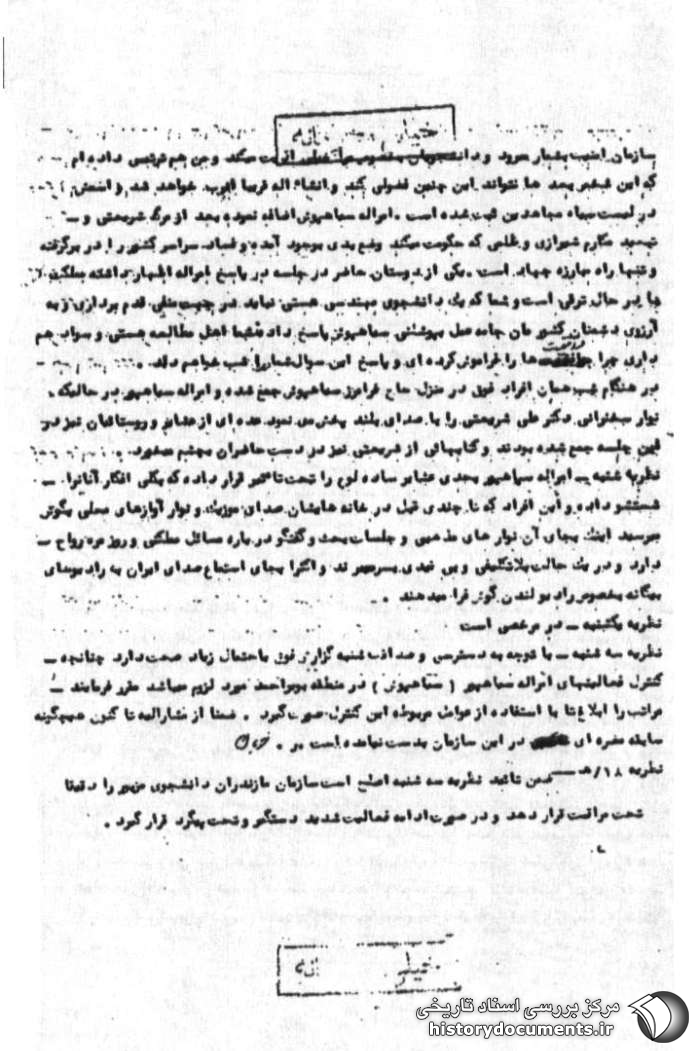 خیلی محرمانه
سازمان امنیت بشمار میرود و دانشجویان بخصوص مرا خیلی اذیت میکند و من هم ترتیبی داده ام
که این شخص بعد ها نتواند این چنین فضولی کند و انشاء اله قریبا خواهد شد (اسمش)
در لیست سیاه مجاهدین ثبت شده است . امراله سیاهپوش اضافه نموده بعد از مرگ شریعتی و ـ
تبعید مکارم شیرازی و ظلمی که حکومت میکند وضع بدی بوجود آمده و فساد سراسر کشور را در برگرفته
و تنها راه مبارزه جهاد است . یکی از دوستان حاضر در جلسه در پاسخ امراله اظهار داشته مملکت
ما در حال ترقی است و شما که یک دانشجوی مهندسی هستی نباید در جهت منفی قدم برداری و به
آرزوی دشمنان کشورمان جامه عمل بپوشانی سیاهپوش پاسخ داد شما اهل مطالعه هستی و سواد هم
داری چرا واقعیت ها را فراموش کرده ای و پاسخ این سوال شما را شب خواهم داد .
در هنگام شب همان افراد فوق در منزل حاج فرامرز سیاهپوش جمع شده و امراله سیاهپوش در حالیکه
نوار سخنرانی دکتر علی شریعتی را با صدای بلند پخش می نمود عده ای از عشایر و روستائیان نیز در
این جلسه جمع شده بودند و کتابهائی از شریعتی نیز در دست حاضران بچشم میخورد .
نظریه شنبه ـ امراله سیاهپوش بحدی عشایر ساده لوح را تحت تاثیر قرار داده که بکلی افکار آنانرا ـ
شستشو داده و این افراد که تا چندی قبل در خانه هایشان صدای موزیک و نوار آوازهای محلی بگوش
میرسید اینک بجای آن نوار های مذهبی و جلسات بحث و گفتگو در باره مسائل مملکتی و روزمره رواج ـ
دارد و در یک حالت بلاتکلیفی و بی قیدی بسر میبرند و اکثرا بجای استماع صدای ایران به رادیوهای
بیگانه بخصوص رادیو لندن گوش فرا میدهند .
نظریه یکشنبه ـ در مرخصی است
نظریه سه شنبه ـ با توجه به دسترسی و صداقت شنبه گزارش فوق باحتمال زیاد صحت دارد چنانچه ـ
کنترل فعالیتهای امراله سیاهپور (سیاهپوش) در منطقه بویراحمد مورد لزوم میباشد مقرر فرمایند ـ
مراتب را ابلاغ تا با استفاده از عوامل مربوطه این کنترل صورت گیرد . ضمنا از مشارالیه تا کنون هیچگونه
سابقه مضره ای در این سازمان بدست نیامده است
نظریه ۱۸/هـ ـ ضمن تائید نظریه سه شنبه اصلح است سازمان مازندران دانشجوی مزبور را دقیقا
تحت مراقبت قرار دهد و در صورت ادامه فعالیت شدید دستگیر و تحت پیگرد قرار گیرد .
خیلی محرمانه
مرکز بررسی اسناد تاریخی
historydocuments.ir